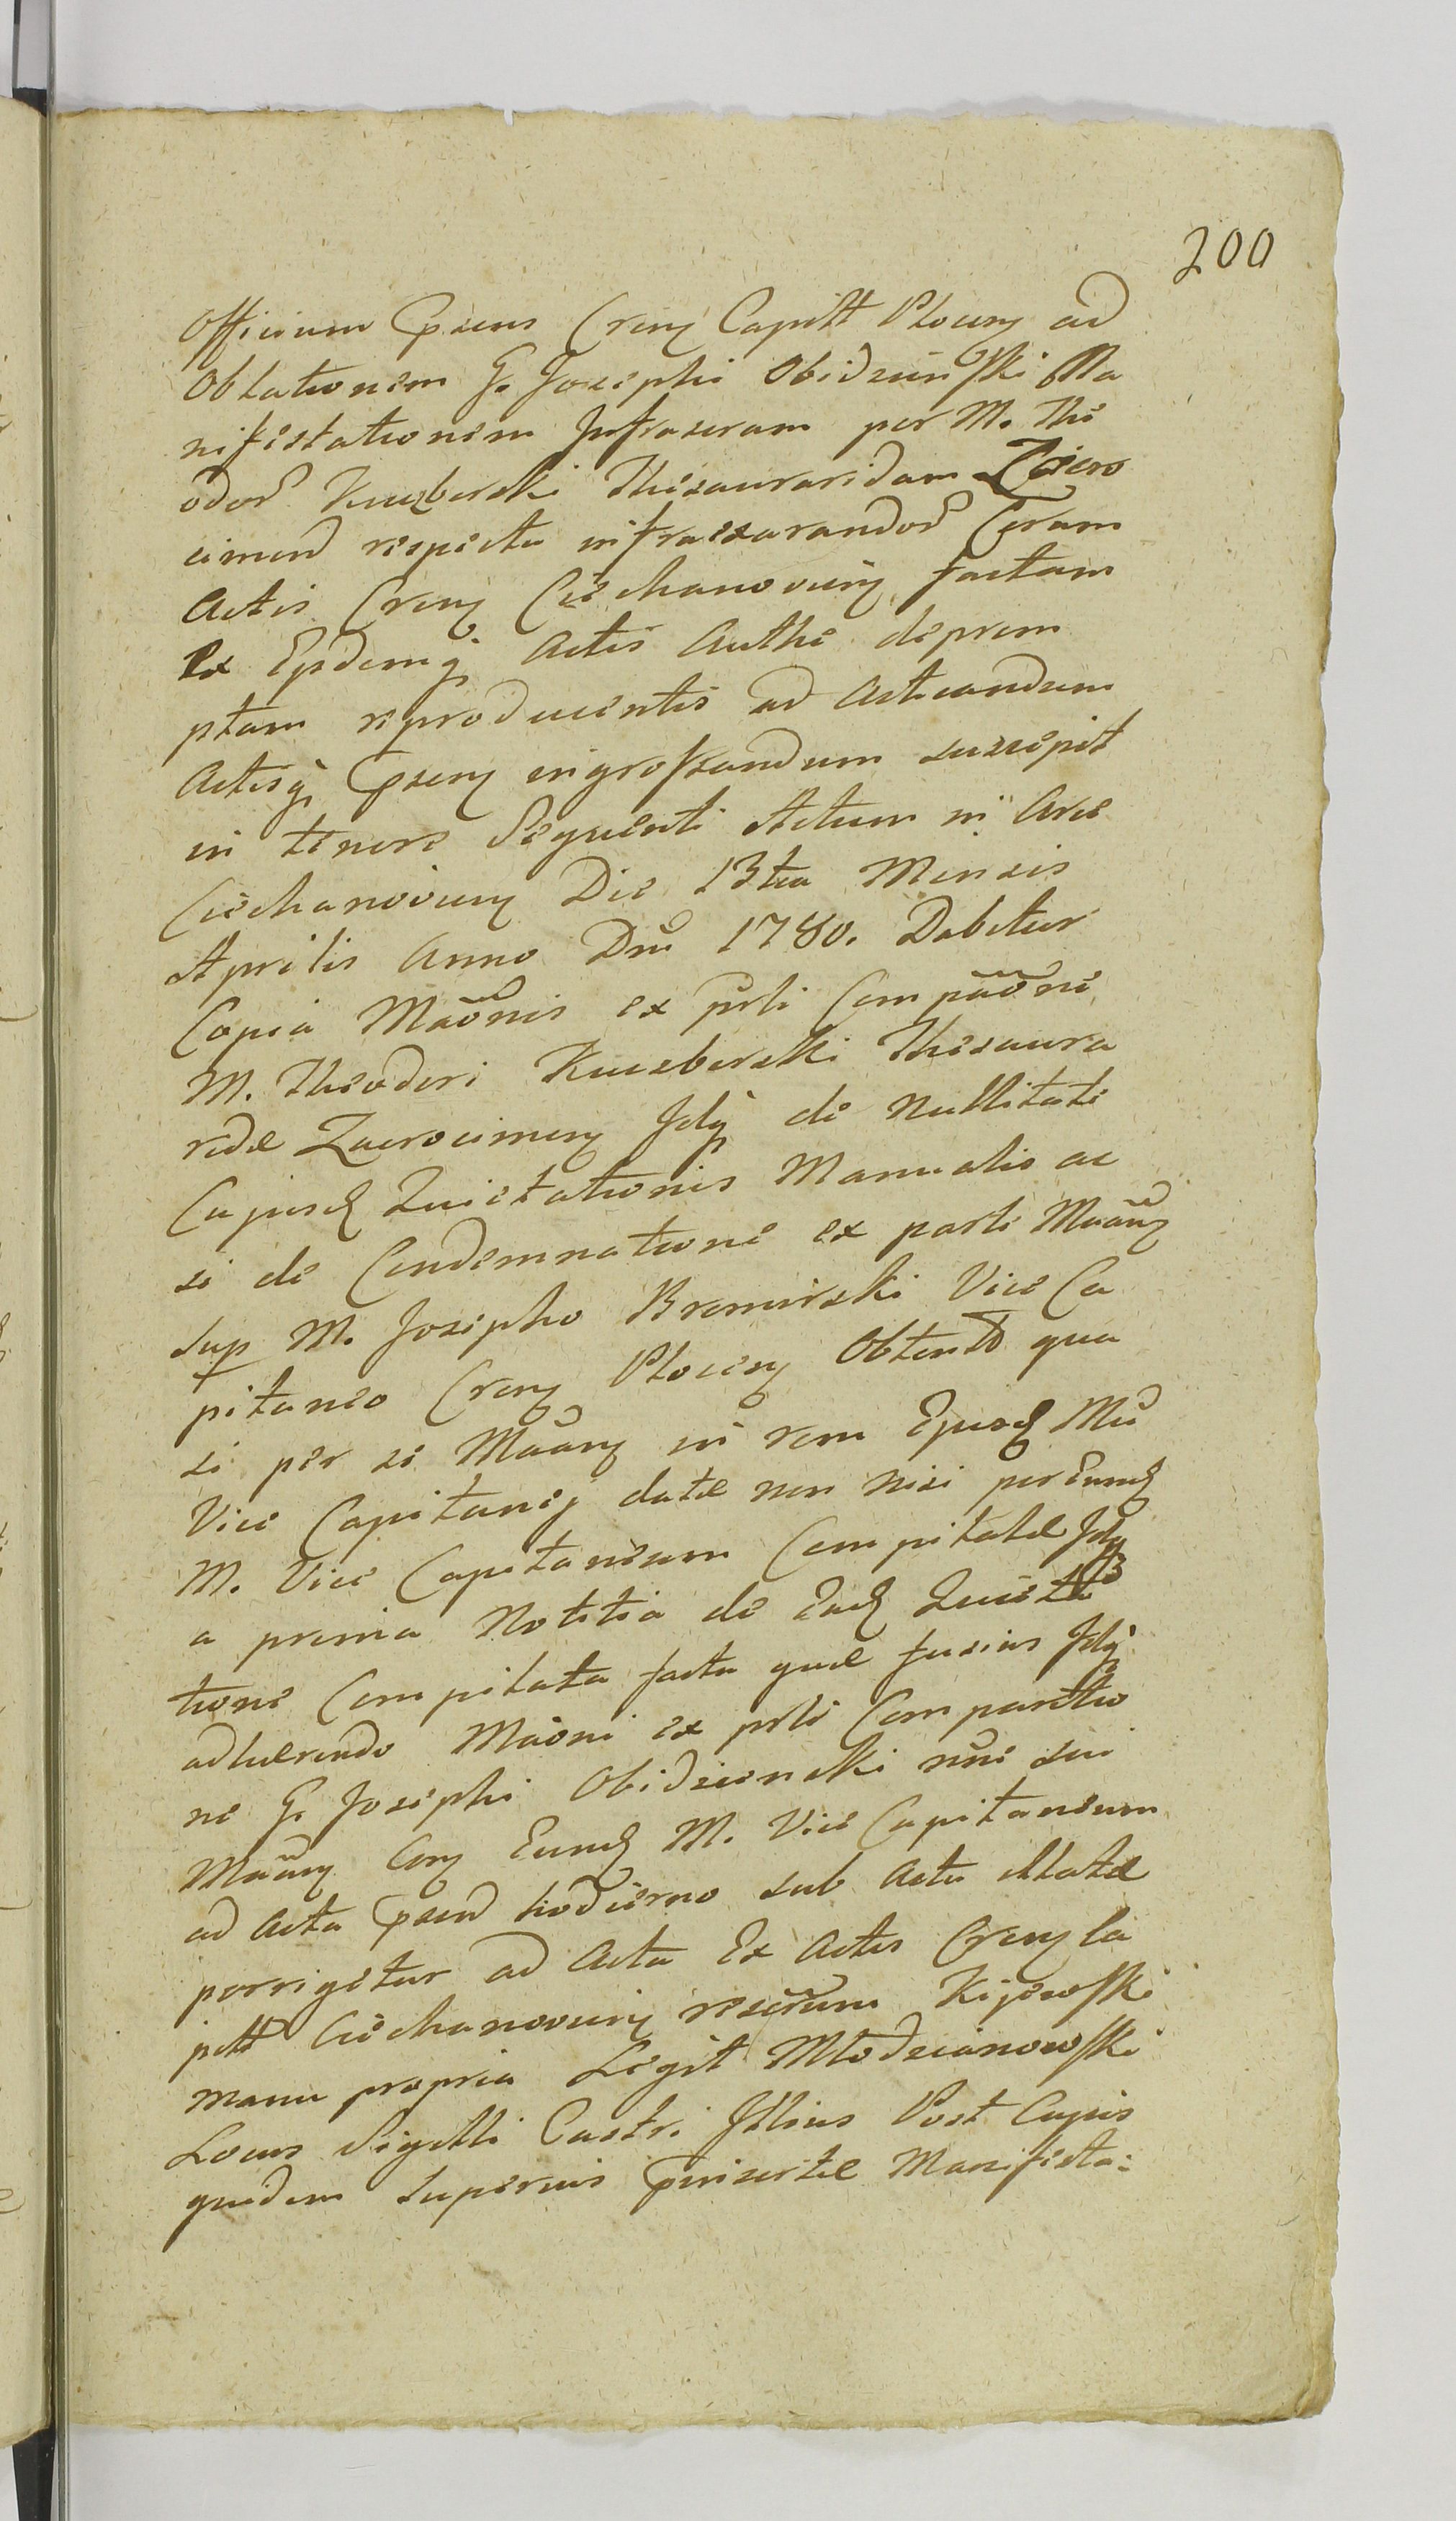 200
Officium Gsens Crens Capitt Plocens ad
Oblationem G. Josephi Obidzinski Ma
nifestationem Infrascram per M. The
odor Kuczborski Thesauraridam Zacro
cimen respectu infraexarandor Coram
Actis Crens Ciechanoviens factam
Ex Ejsdemq Actis Authe deprom
ptam reproducentis ad Acticandum
Actisq psens ingrossandum suscepit
in tenore Sequenti Actum in Arce
Ciechanoviens Die 13tia Mensis
Aprilis Anno Dni 1780. Dabitur
Copia Maõnis ex prti Compãone
M. Theodori Kuczborski Thesaura
ridæ Zacrocimens Idq de Nullitate
Cujusd Quietationis Manualis ac
si de Condemnatione ex parte Maan
Sup M. Josepho Bromirski Vice Ca
pitaneo Crens Plocens Obtent qua
si per se Maan in rem Ejusd Mci
Vice Capitanej datæ non nisi per Eund
M. Vice Capitaneum Compitatæ Idq
a prima Notitia de Ead Quieta
tione Compitata facta quæ fusius Idq
adhærendo Maoni ex prti Comparitio
ne G. Josephi Obidzienski nne sui
Maan Con Eund M. Vice Capitaneum
ad Acta psen hodierno sub Actu illatæ
porrigetur ad Acta Ex Actis Crens Ca
pitt Ciechanoviens rescrum Kijewski
manu propria Legit Młodzianowski
Locus Sigilli Castri Illius Post Cujus
quidem Superius pinsertæ Manifesta: